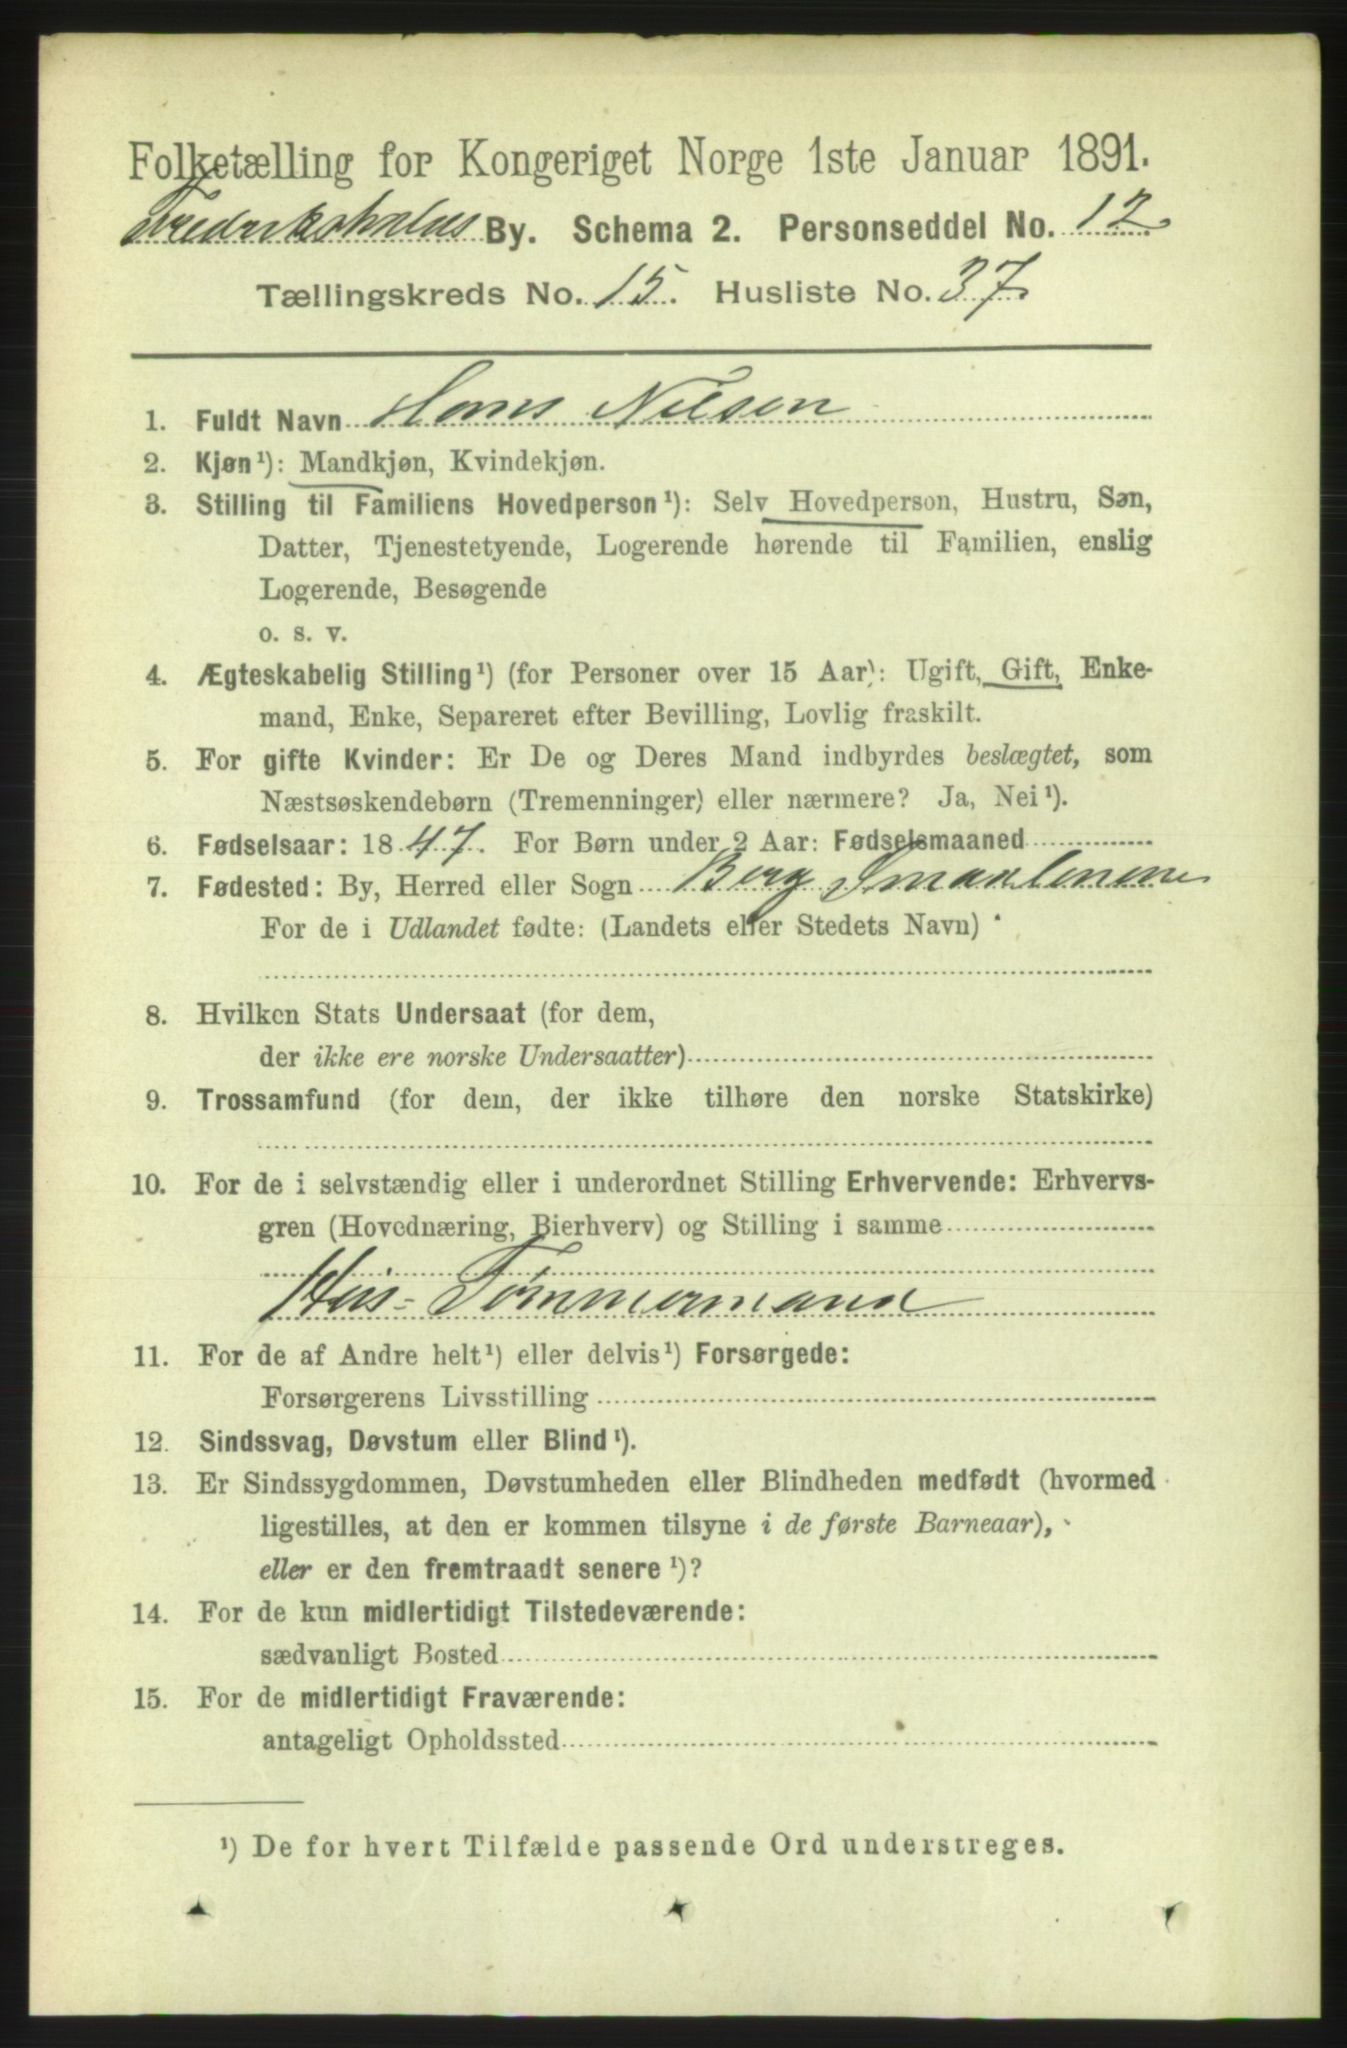 Folketælling for Kongeriget Norge 1ste Januar 1891.
Fredrikshalds By. Schema 2. Personseddel No. 12
Tællingskreds No. 15. Husliste No. 37
1. Fuldt Navn Hans Nilsen
2. Kjøn¹): Mandkjøn, Kvindekjøn.
3. Stilling til Familiens Hovedperson¹): Selv Hovedperson, Hustru, Søn,
Datter, Tjenestetyende, Logerende hørende til Familien, enslig
Logerende, Besøgende
o. s. v.
4. Ægteskabelig Stilling¹) (for Personer over 15 Aar): Ugift, Gift, Enke-
mand, Enke, Separeret efter Bevilling, Lovlig fraskilt.
5. For gifte Kvinder: Er De og Deres Mand indbyrdes beslægtet, som
Næstsøskendebørn (Tremenninger) eller nærmere? Ja, Nei¹).
6. Fødselsaar: 1847. For Børn under 2 Aar: Fødselsmaaned
7. Fødested: By, Herred eller Sogn Berg Smaalenene
For de i Udlandet fødte: (Landets eller Stedets Navn)
8. Hvilken Stats Undersaat (for dem,
der ikke ere norske Undersaatter)
9. Trossamfund (for dem, der ikke tilhøre den norske Statskirke)
10. For de i selvstændig eller i underordnet Stilling Erhvervende: Erhvervs-
gren (Hovednæring, Bierhverv) og Stilling i samme
Hus-Tømmermand
11. For de af Andre helt¹) eller delvis¹) Forsørgede:
Forsørgerens Livsstilling
12. Sindssvag, Døvstum eller Blind¹).
13. Er Sindssygdommen, Døvstumheden eller Blindheden medfødt (hvormed
ligestilles, at den er kommen tilsyne i de første Barneaar),
eller er den fremtraadt senere¹)?
14. For de kun midlertidigt Tilstedeværende:
sædvanligt Bosted
15. For de midlertidigt Fraværende:
antageligt Opholdssted
¹) De for hvert Tilfælde passende Ord understreges.